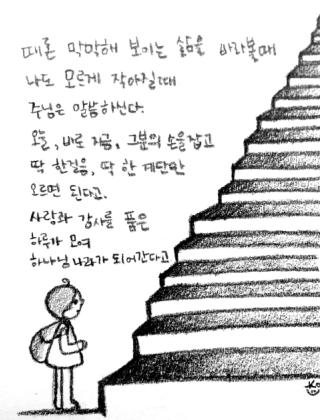 때론 막막해 보이는 삶을 바라볼때
나도 모르게 작아질때
주님은 말씀하신다.
오늘, 바로 지금, 그분의 손을잡고
딱 한걸음, 딱 한 계단만
오르면 된다고.
사랑과 감사를 품은
하루가 모여
하나님 나라가 되어간다고